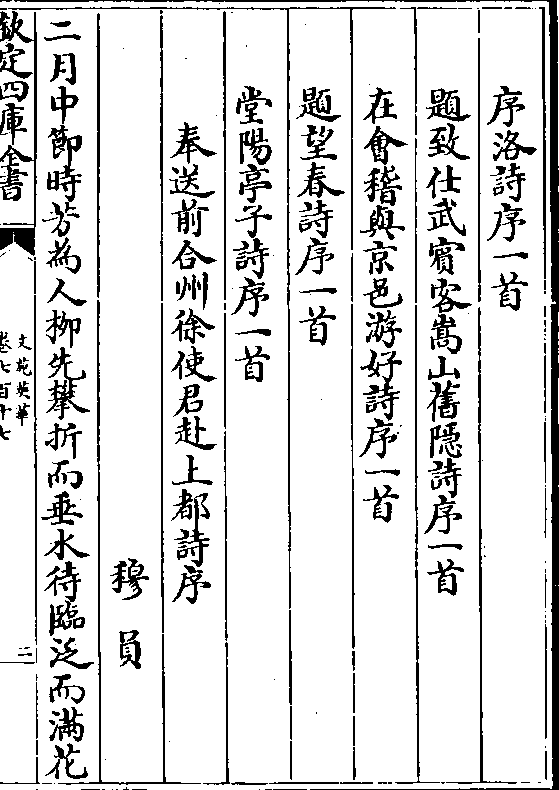 序洛詩序一首
題致仕武賓客嵩山舊隠詩序一首
在會稽與京邑游好詩序一首
題望春詩序一首
堂陽亭子詩序一首
奉送前合州徐使君赴上都詩序
穆員
二月中節時芳為人栁先攀折而垂水待臨泛而滿花
欽定四庫全書
文苑英華
卷七百十七
二